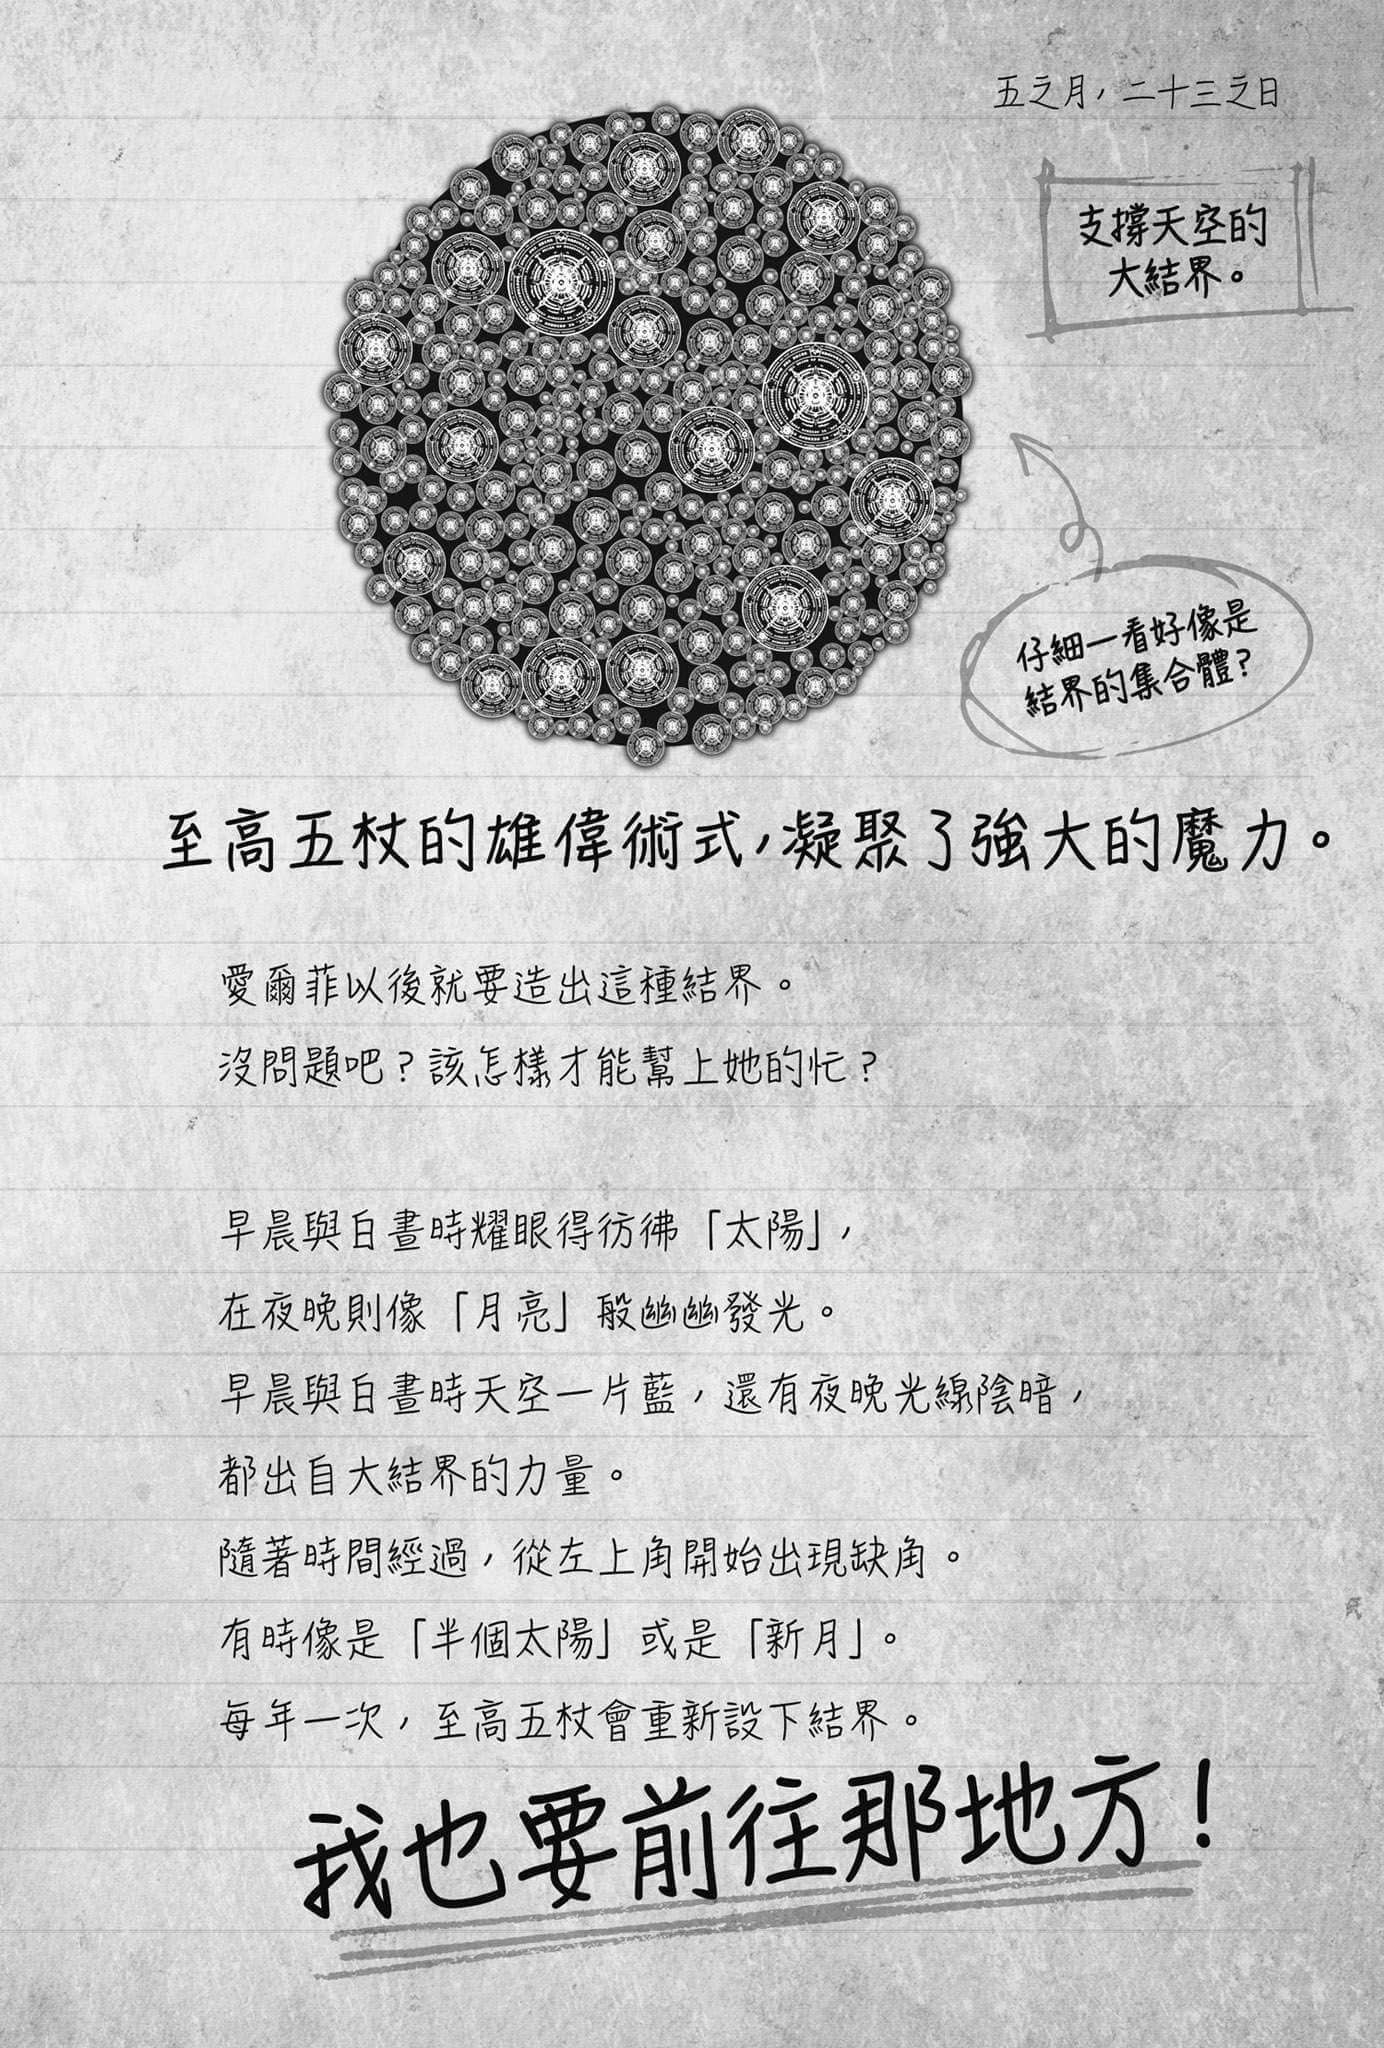 五之月，二十三之日
支撐天空的
大結界。
仔細一看好像是
結界的集合體？
至高五杖的雄偉術式，凝聚了強大的魔力。
愛爾菲以後就要造出這種結界。
沒問題吧？該怎樣才能幫上她的忙？
早晨與白晝時耀眼得彷彿「太陽」，
在夜晚則像「月亮」般幽幽發光。
早晨與白晝時天空一片藍，還有夜晚光線陰暗，
都出自大結界的力量。
隨著時間經過，從左上角開始出現缺角。
有時像是「半個太陽」或是「新月」。
每年一次，至高五杖會重新設下結界。
我也要前往那地方！